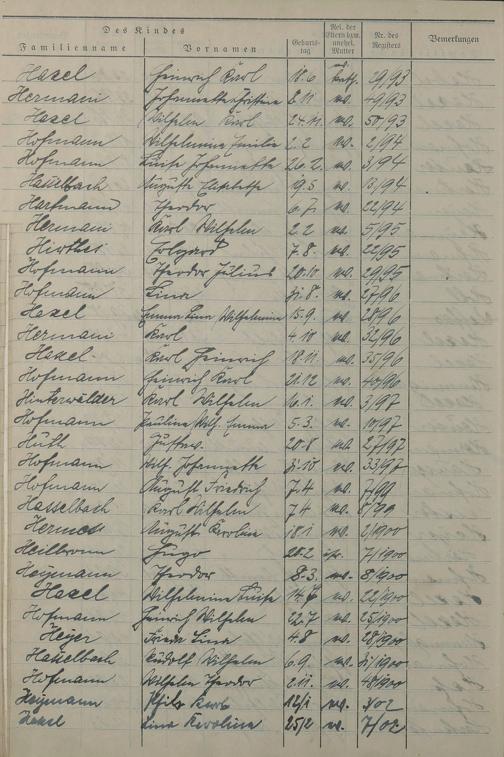 Des Kindes
Familienname Vornamen Geburtstag Rel. der Eltern bzw. unehel. Mutter Nr. des Registers Bemerkungen
Hasel Heinrich Karl 18.6 kath. 29/93
Hermani Johannette Christine 8.11 ev. 49/93
Hasel Wilhelm Karl 24.11. ev. 50/93
Hofmann Wilhelmine Emilie 2.2 ev. 2/94
Hofmann Luise Johannette 26.2. ev. 3/94
Hasselbach Auguste Elisabethe 19.5 ev. 13/94
Hartmann Theodor 6.7. ev. 22/94
Hermani Karl Wilhelm 2.2 ev. 5/95
Hirthes 7.8. ev. 22/95
Hofmann Theodor Julius 20.10 ev. 29/95
Hofmann Lina 31.8. ev. 27/96
Hasel Emma Lina Wilhelmine 15.9. ev. 28/96
Hermani Karl 4.10 ev. 32/96
Hasel Karl Heinrich 18.11. ev. 35/96
Hofmann Heinrich Karl 21.12 ev. 40/96
Hinterwälder Karl Wilhelm 6.1. ev. 3/97
Hofmann Pauline Wilh. Emma 5.3. ev. 10/97
Huth Gustav. 20.8 ev. 27/97
Hofmann Wilh. Johannette 31.10 ev. 33/97
Hofmann August Friedrich 7.4 ev. 7/99
Hasselbach Karl Wilhelm 7.4 ev. 8/99
August Karoline 18.1 ev. 2/1900
Heilbronn Hugo 28.2 isr. 7/1900
Heymann Theodor 8.3. ev. 8/1900
Hasel Wilhelmine Luise 14.7 ev. 22/1900
Hofmann Heinrich Wilhelm 22.7 ev. 25/1900
Heyer Frieda Lina 4.8 ev. 28/1900
Hasselbach Rudolf Wilhelm 6.9. ev. 31/1900
Hofmann Wilhelm Theodor 2.11. ev. 48/1900
Heymann Karl 12/1 ev. 3/02
Hasel Lina Karoline 25/2 ev. 7/02